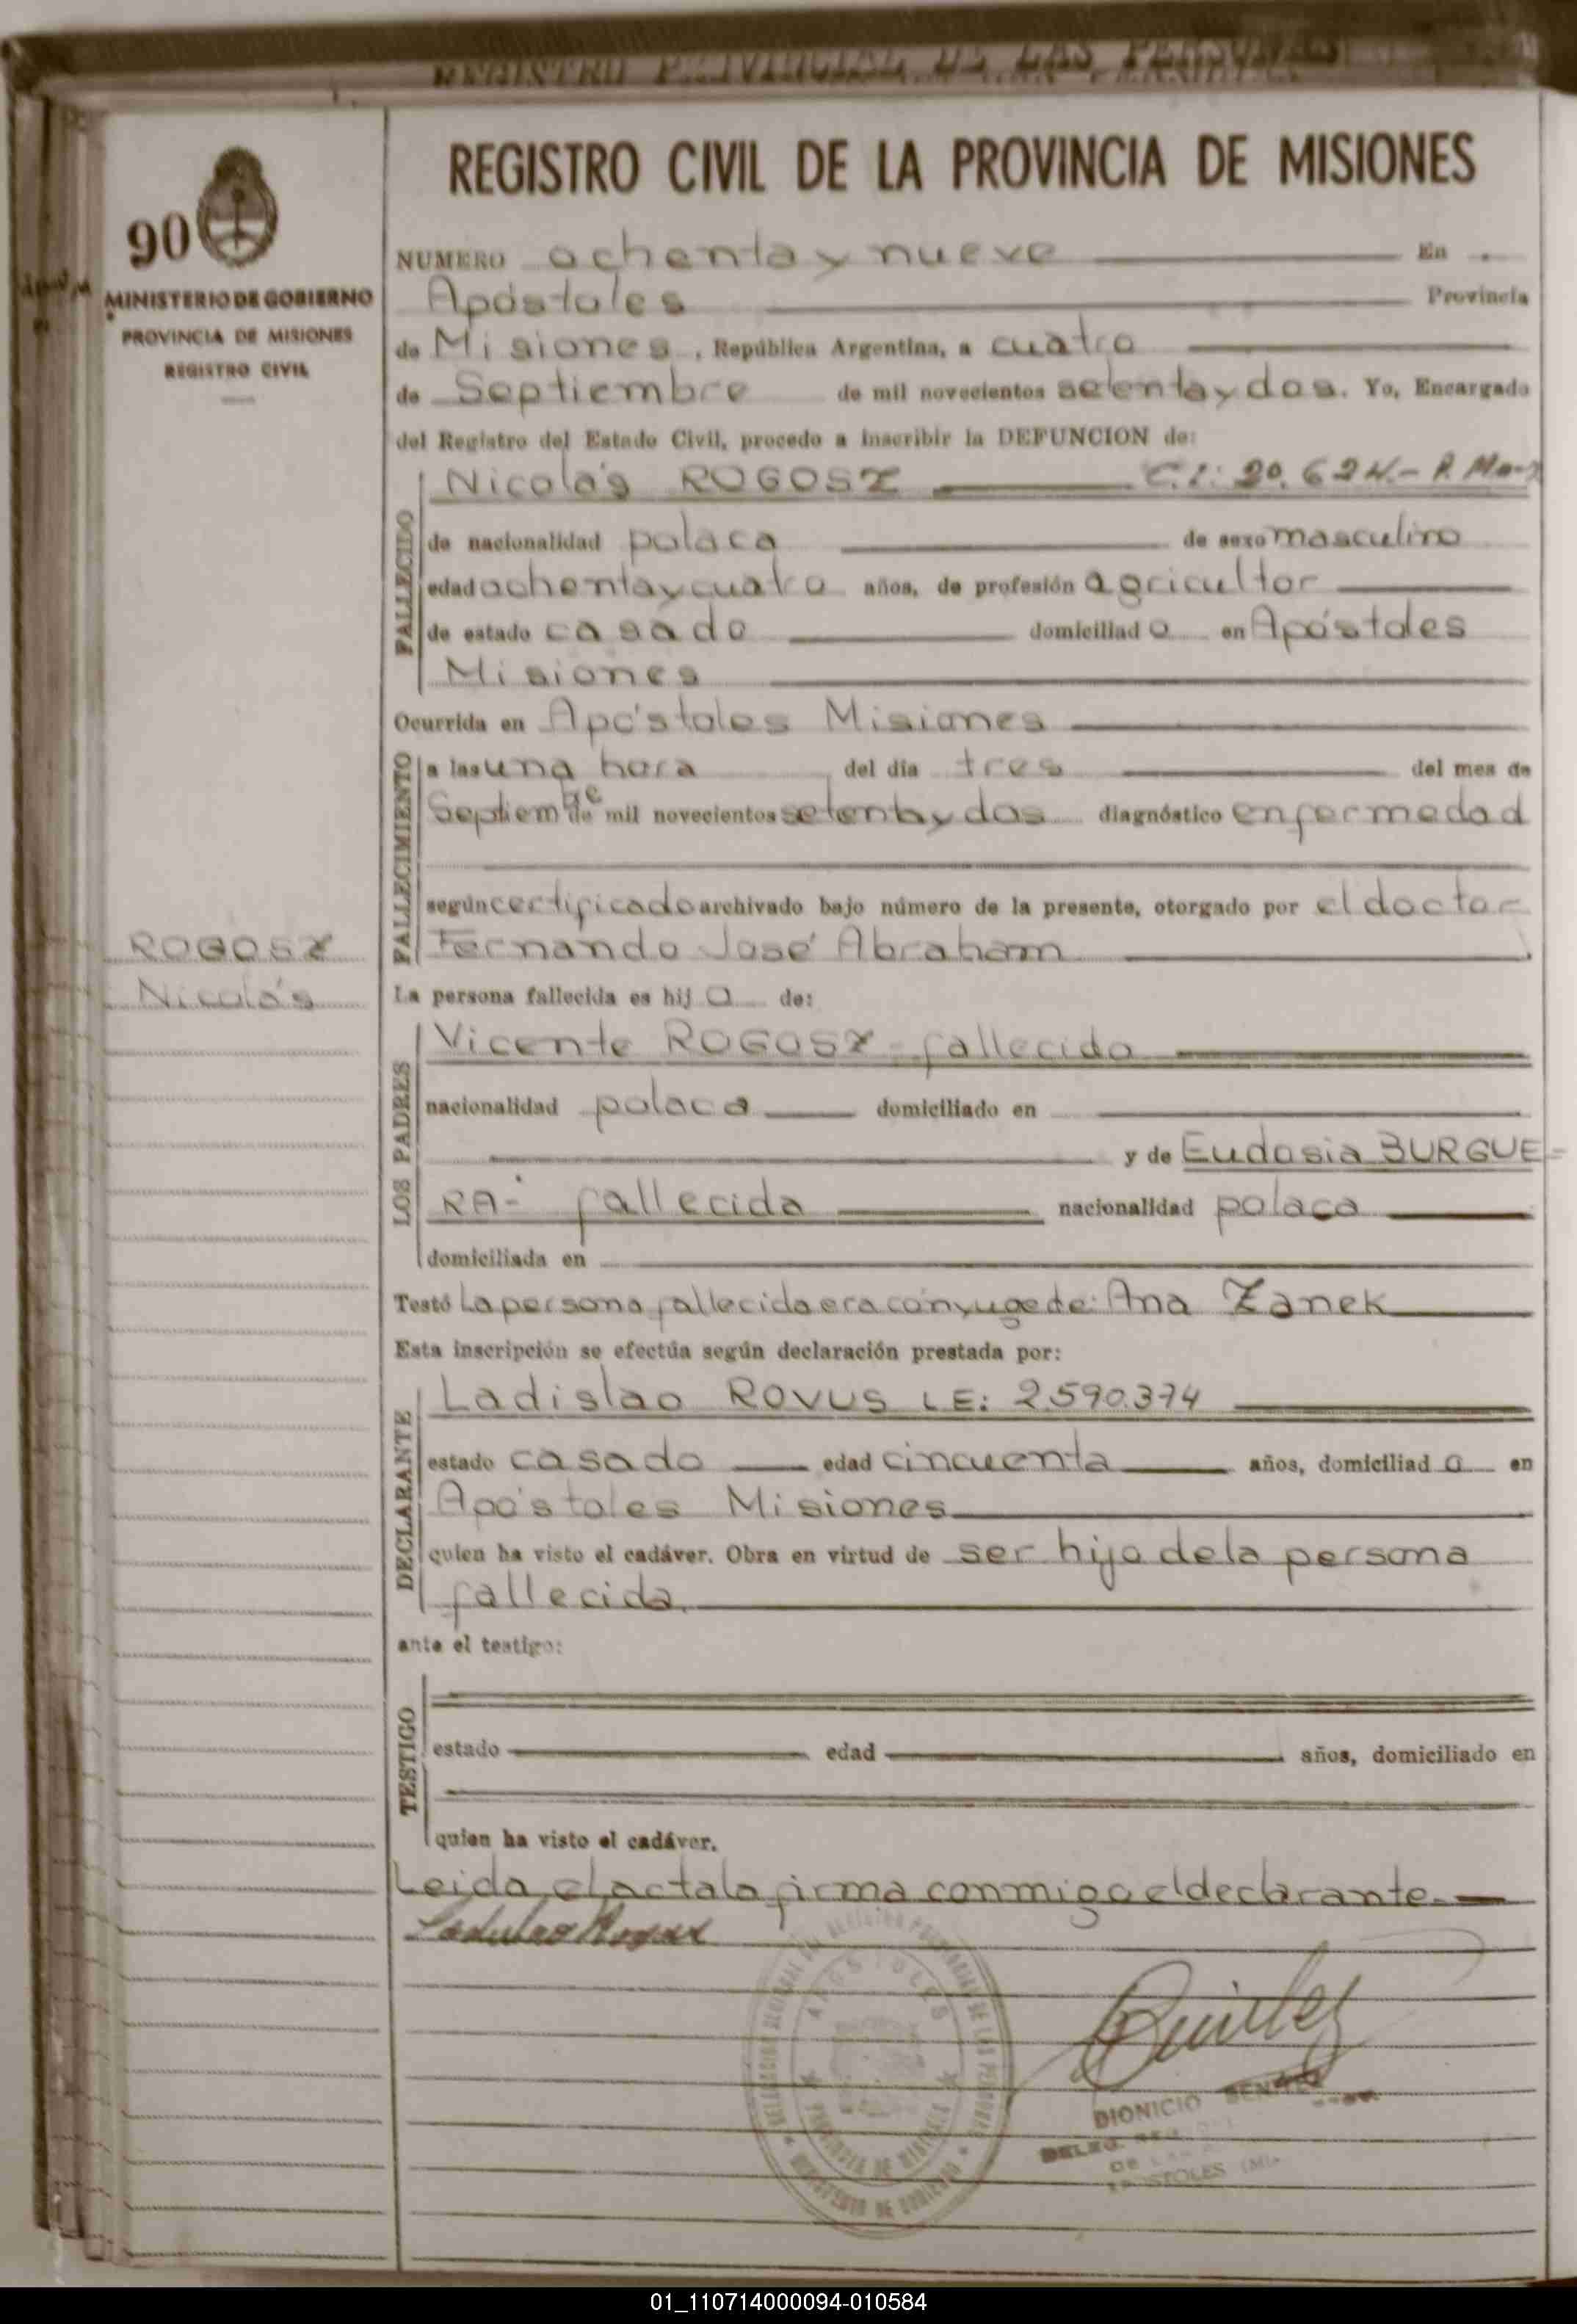 REGISTRO PROVINCIAL DE LAS PERSONAS
90
MINISTERIO DE GOBIERNO
PROVINCIA DE MISIONES
REGISTRO CIVIL
ROGOSZ
Nicolás
REGISTRO CIVIL DE LA PROVINCIA DE MISIONES
NUMERO ochenta y nueve En
Apóstoles Provincia
de Misiones, República Argentina, a cuatro
de Septiembre de mil novecientos setenta y dos. Yo, Encargado
del Registro del Estado Civil, procedo a inscribir la DEFUNCION de:
FALLECIDO
Nicolás ROGOSZ C.I: 20.624.-
de nacionalidad polaca de sexo masculino
edad ochenta y cuatro años, de profesión agricultor
de estado casado domiciliado en Apóstoles
Misiones
Ocurrida en Apóstoles Misiones
FALLECIMIENTO
a las una hora del día tres del mes de
Septiembre de mil novecientos setenta y dos diagnóstico enfermedad
según certificado archivado bajo número de la presente, otorgado por el doctor
Fernando José Abraham
La persona fallecida es hijo de:
LOS PADRES
Vicente ROGOSZ - fallecido
nacionalidad polaca domiciliado en
y de Eudosia BURGUE=
RA- fallecida nacionalidad polaca
domiciliada en
Testó La persona fallecida era cónyuge de: Ana Zanek
Esta inscripción se efectúa según declaración prestada por:
DECLARANTE
Ladislao ROVUS LE: 2.590.374
estado casado edad cincuenta años, domiciliado en
Apóstoles Misiones
quien ha visto el cadáver. Obra en virtud de ser hijo de la persona
fallecida.
ante el testigo:
TESTIGO
estado edad años, domiciliado en
quien ha visto el cadáver.
Leida el acta la firma conmigo el declarante.-
Ladislao
APOSTOLES
PROVINCIA DE MISIONES
DIONICIO
APOSTOLES
01_110714000094-010584